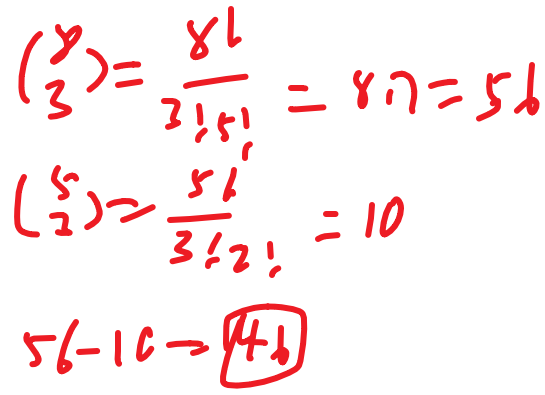 (8 3) = 8! / 3!5! = 8·7 = 56
(5 2) = 5! / 3!2! = 10
56 - 10 = 46